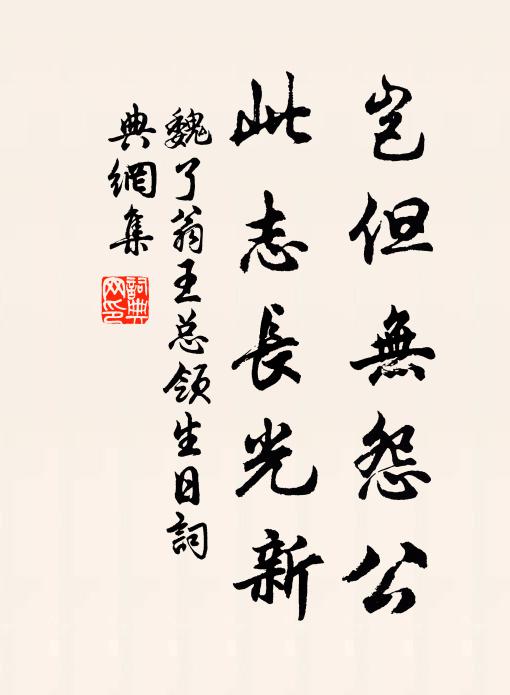 豈但無怨公
此志長光新
魏了翁王总领生日詞
典網集
詞典網印